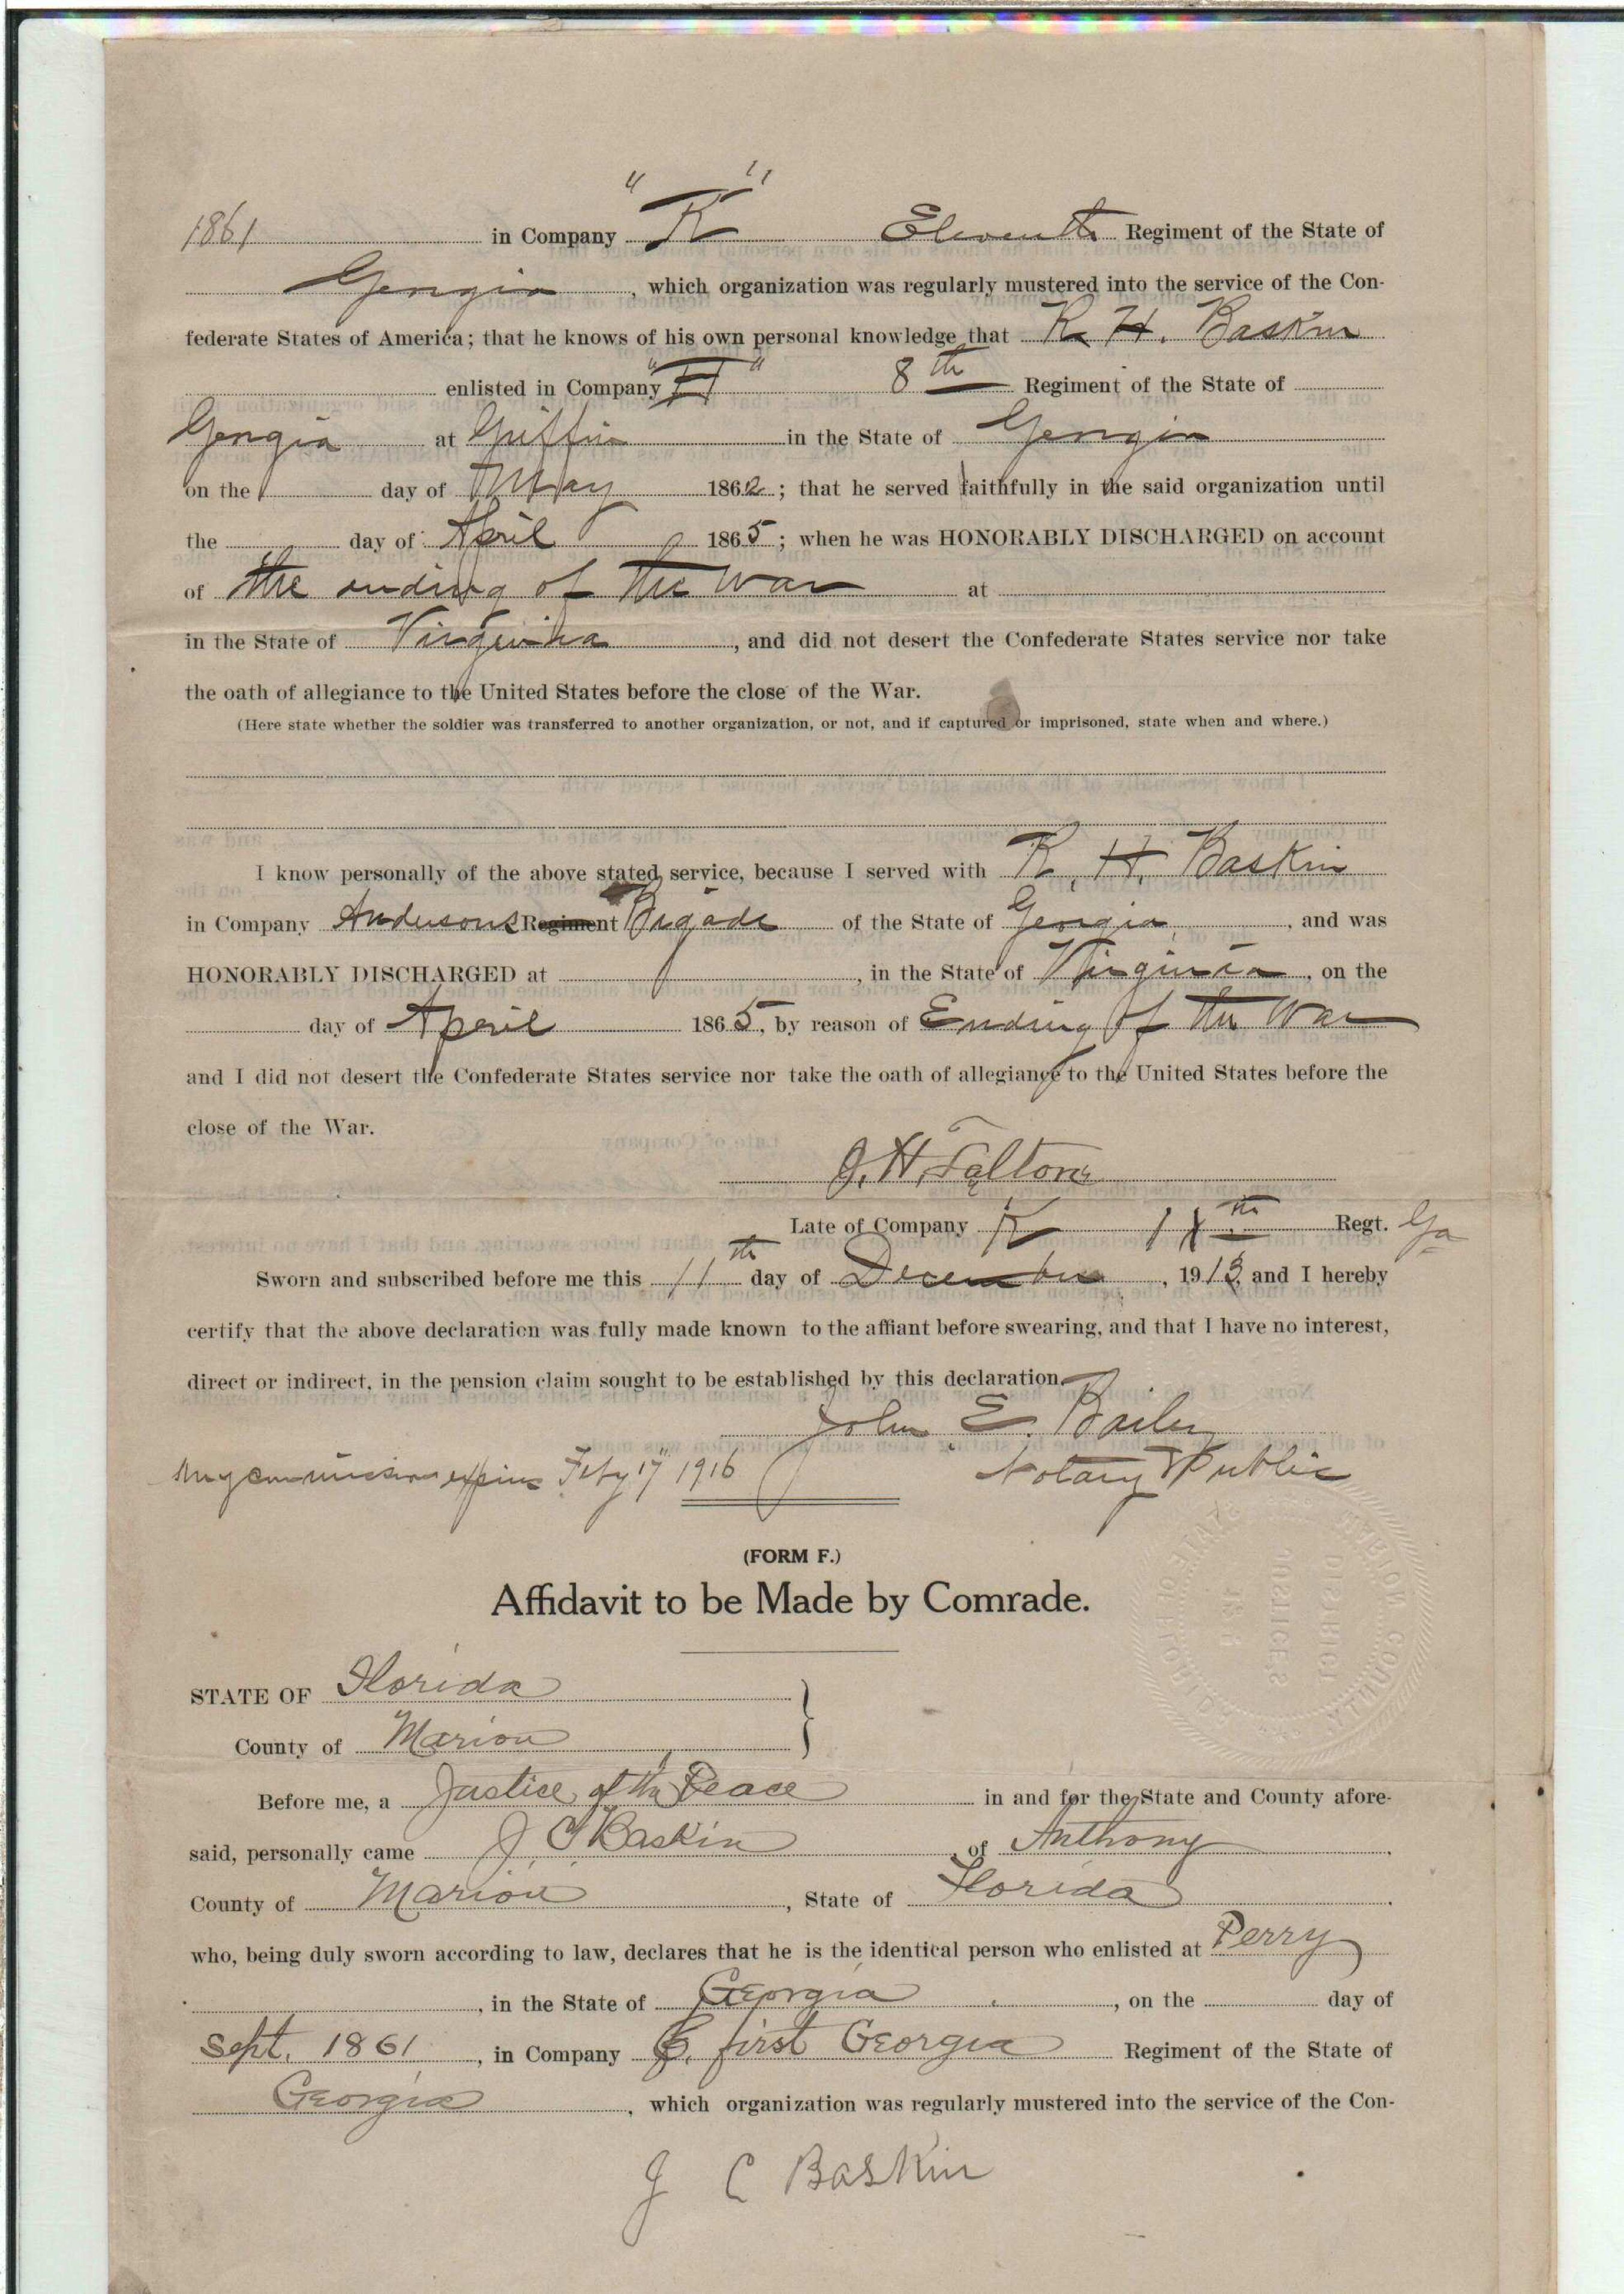 1861 in Company "K" Eleventh Regiment of the State of
Georgia, which organization was regularly mustered into the service of the Con-
federate States of America; that he knows of his own personal knowledge that R. H. Baskin
enlisted in Company 8th Regiment of the State of
Georgia at Griffin in the State of Georgia
on the day of May 1862; that he served faithfully in the said organization until
the day of April 1865; when he was HONORABLY DISCHARGED on account
of the ending of the War at
in the State of Virginia, and did not desert the Confederate States service nor take
the oath of allegiance to the United States before the close of the War.
(Here state whether the soldier was transferred to another organization, or not, and if captured or imprisoned, state when and where.)
I know personally of the above stated service, because I served with R. H. Baskin
in Company Andersons Regiment Brigade of the State of Georgia, and was
HONORABLY DISCHARGED at , in the State of Virginia, on the
day of April 1865, by reason of Ending of the War
and I did not desert the Confederate States service nor take the oath of allegiance to the United States before the
close of the War.
J. H.
Late of Company K 11th Regt. Ga
Sworn and subscribed before me this 11th day of December, 1913, and I hereby
certify that the above declaration was fully made known to the affiant before swearing, and that I have no interest,
direct or indirect, in the pension claim sought to be established by this declaration.
John E. Bailey
My commission expires Feby 17" 1916 Notary Public
(FORM F.)
Affidavit to be Made by Comrade.
STATE OF Florida
County of Marion
Before me, a Justice of the Peace in and for the State and County afore-
said, personally came J. C. Baskin of Anthony
County of Marion, State of Florida
who, being duly sworn according to law, declares that he is the identical person who enlisted at Perry
, in the State of Georgia, on the day of
Sept. 1861, in Company C. first Georgia Regiment of the State of
Georgia, which organization was regularly mustered into the service of the Con-
J C Baskin